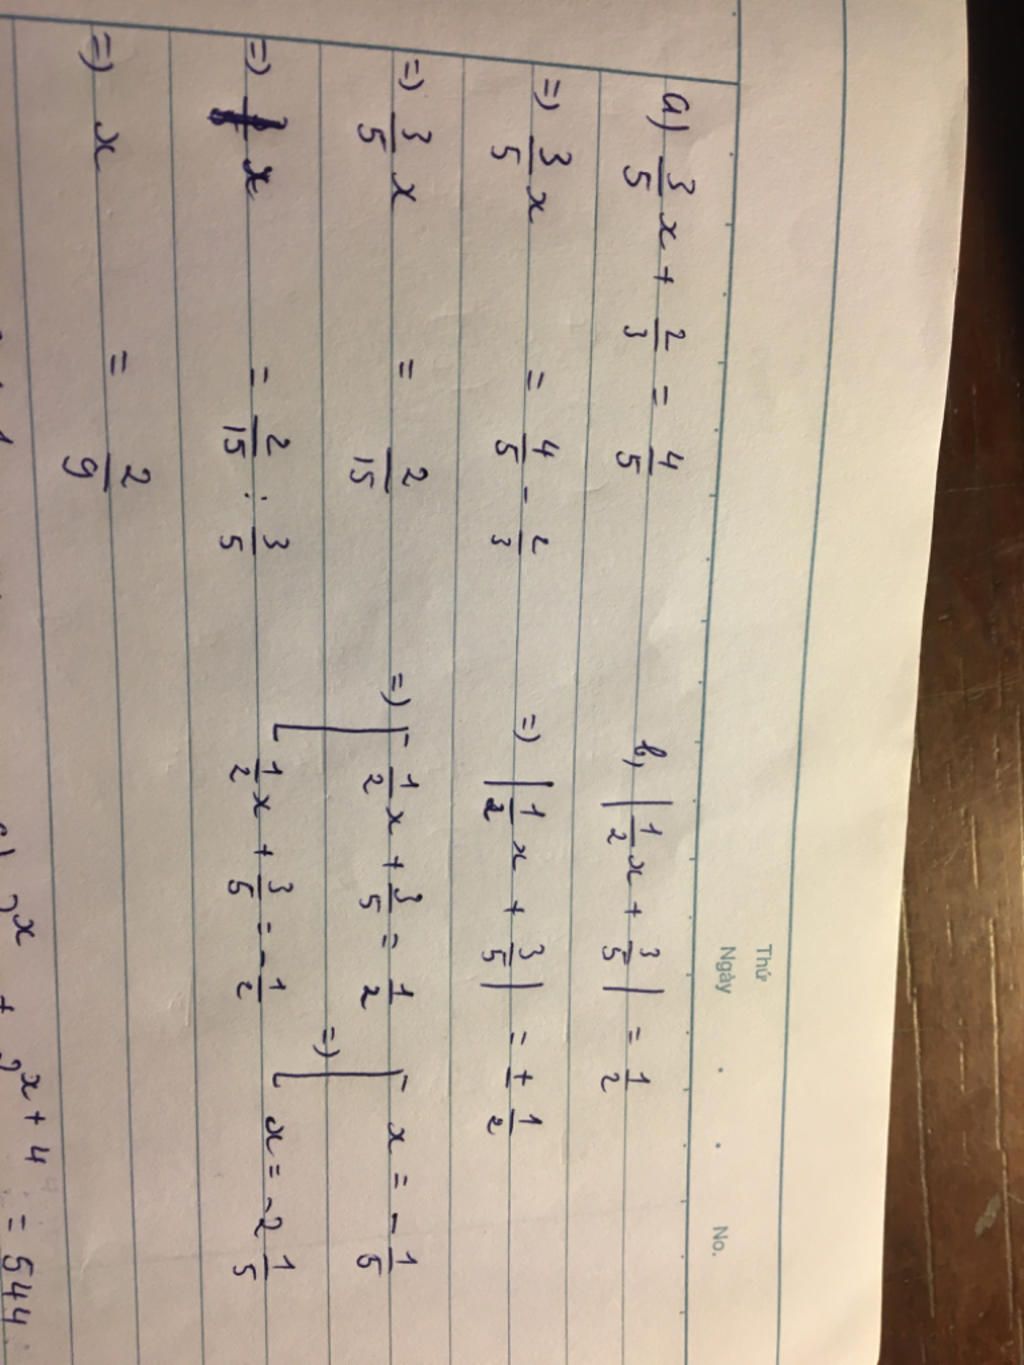 Thứ
Ngày . . No.
a) 3/5 x + 2/3 = 4/5
=) 3/5 x = 4/5 - 2/3
=) 3/5 x = 2/15
=) x = 2/15 : 3/5
=) x = 2/9
b, |1/2 x + 3/5| = 1/2
=) |1/2 x + 3/5| = ± 1/2
=) [ 1/2 x + 3/5 = 1/2 =) [ x = - 1/5
1/2 x + 3/5 = - 1/2 x = -2 1/5
x + 2^x+4 = 544